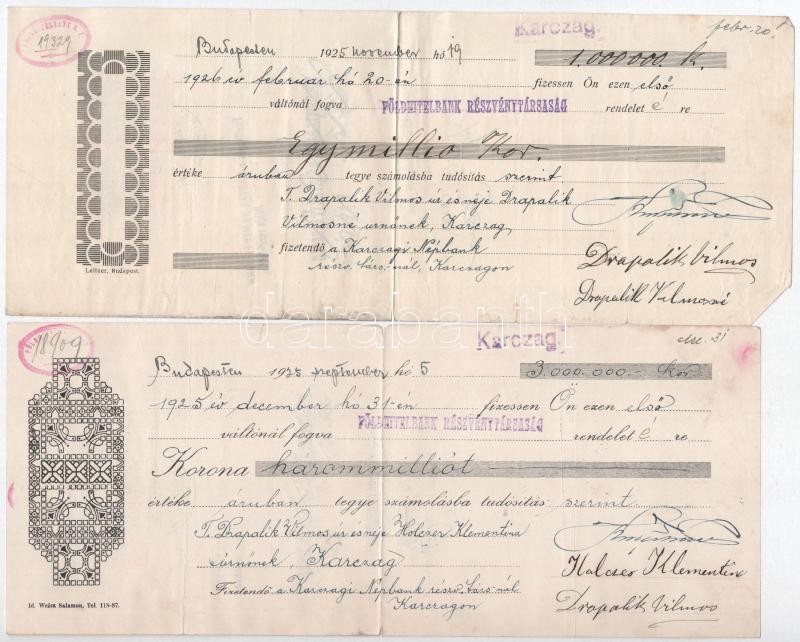 19329
Karczag.
febr. 20.
Budapesten 1925 november hó 19 1.000000. k.
1926 év február hó 20-án fizessen Ön ezen első
váltónál fogva FÖLDHITELBANK RÉSZVÉNYTÁRSASÁG rendelet e re
Egymillio Kor.
értéke áruban tegye számolásba tudósítás szerint
T. Drapalik Vilmos úr és neje Drapalik
Vilmosné urnőnek, Karczag
fizetendő a Karczagi Népbank
részv. társ.-nál, Karczagon
Drapalik Vilmos
Drapalik Vilmosné
Leitner, Budapest.
darabanth
18909
Karczag.
31
Budapesten 1925 szeptember hó 5 3.000.000.- kor
1925 év december hó 31-én fizessen Ön ezen első
váltónál fogva FÖLDHITELBANK RÉSZVÉNYTÁRSASÁG rendelet e re
Korona hárommilliót
értéke áruban tegye számolásba tudósítás szerint.
T. Drapalik Vilmos úr és neje Holczer Klementina
úrnőnek, Karczag
Fizetendő a Karczagi Népbank részv. társ.-nál
Karczagon
Klementin
Drapalik Vilmos
Id. Weisz Salamon, Tel. 118-87.